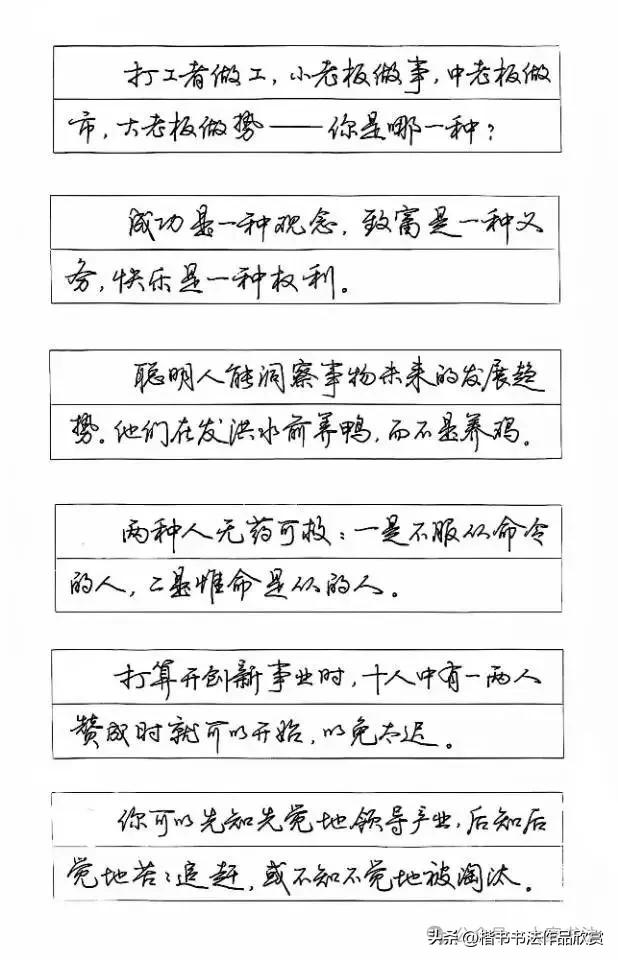 打工者做工，小老板做事，中老板做
市，大老板做势——你是哪一种？
成功是一种观念，致富是一种义
务，快乐是一种权利。
聪明人能洞察事物未来的发展趋
势。他们在发洪水前养鸭，而不是养鸡。
两种人无药可救：一是不服从命令
的人，二是惟命是从的人。
打算开创新事业时，十人中有一两人
赞成时就可以开始，以免太迟。
你可以先知先觉地领导产业，后知后
觉地苦苦追赶，或不知不觉地被淘汰。
头条@楷书书法作品欣赏